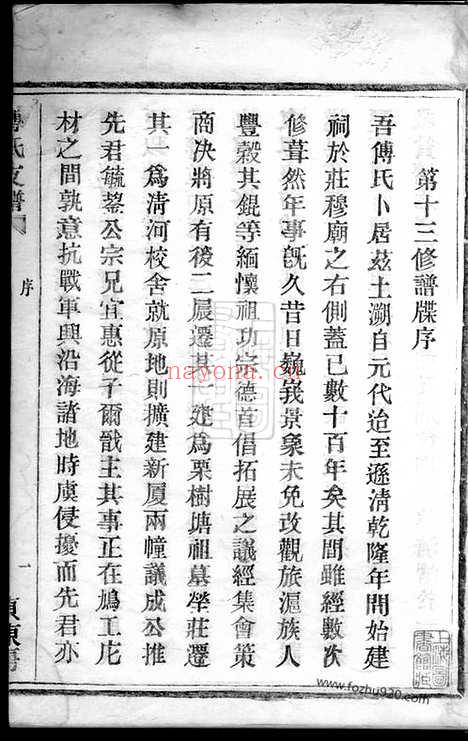 第十三修譜牒序
吾傅氏卜居茲土溯自元代迨至遜清乾隆年間始建
祠於莊穆廟之右側蓋已數十百年矣其間雖經數次
修葺然年事旣久昔日巍峩景象未免改觀旅滬族人
豐穀其錕等緬懷祖功宗德首倡拓展之議經集會策
商决將原有後二晨遷其一建為栗樹塘祖墓塋莊遷
其一為淸河校舍就原地則擴建新厦兩幢議成公推
先君毓鋆公宗兄宜惠從子爾戩主其事正在鳩工庀
材之間孰意抗戰軍興沿海諸地時虞侵擾而先君亦
傅氏支譜
序
一
nayona.cn
www.fozhu920.com